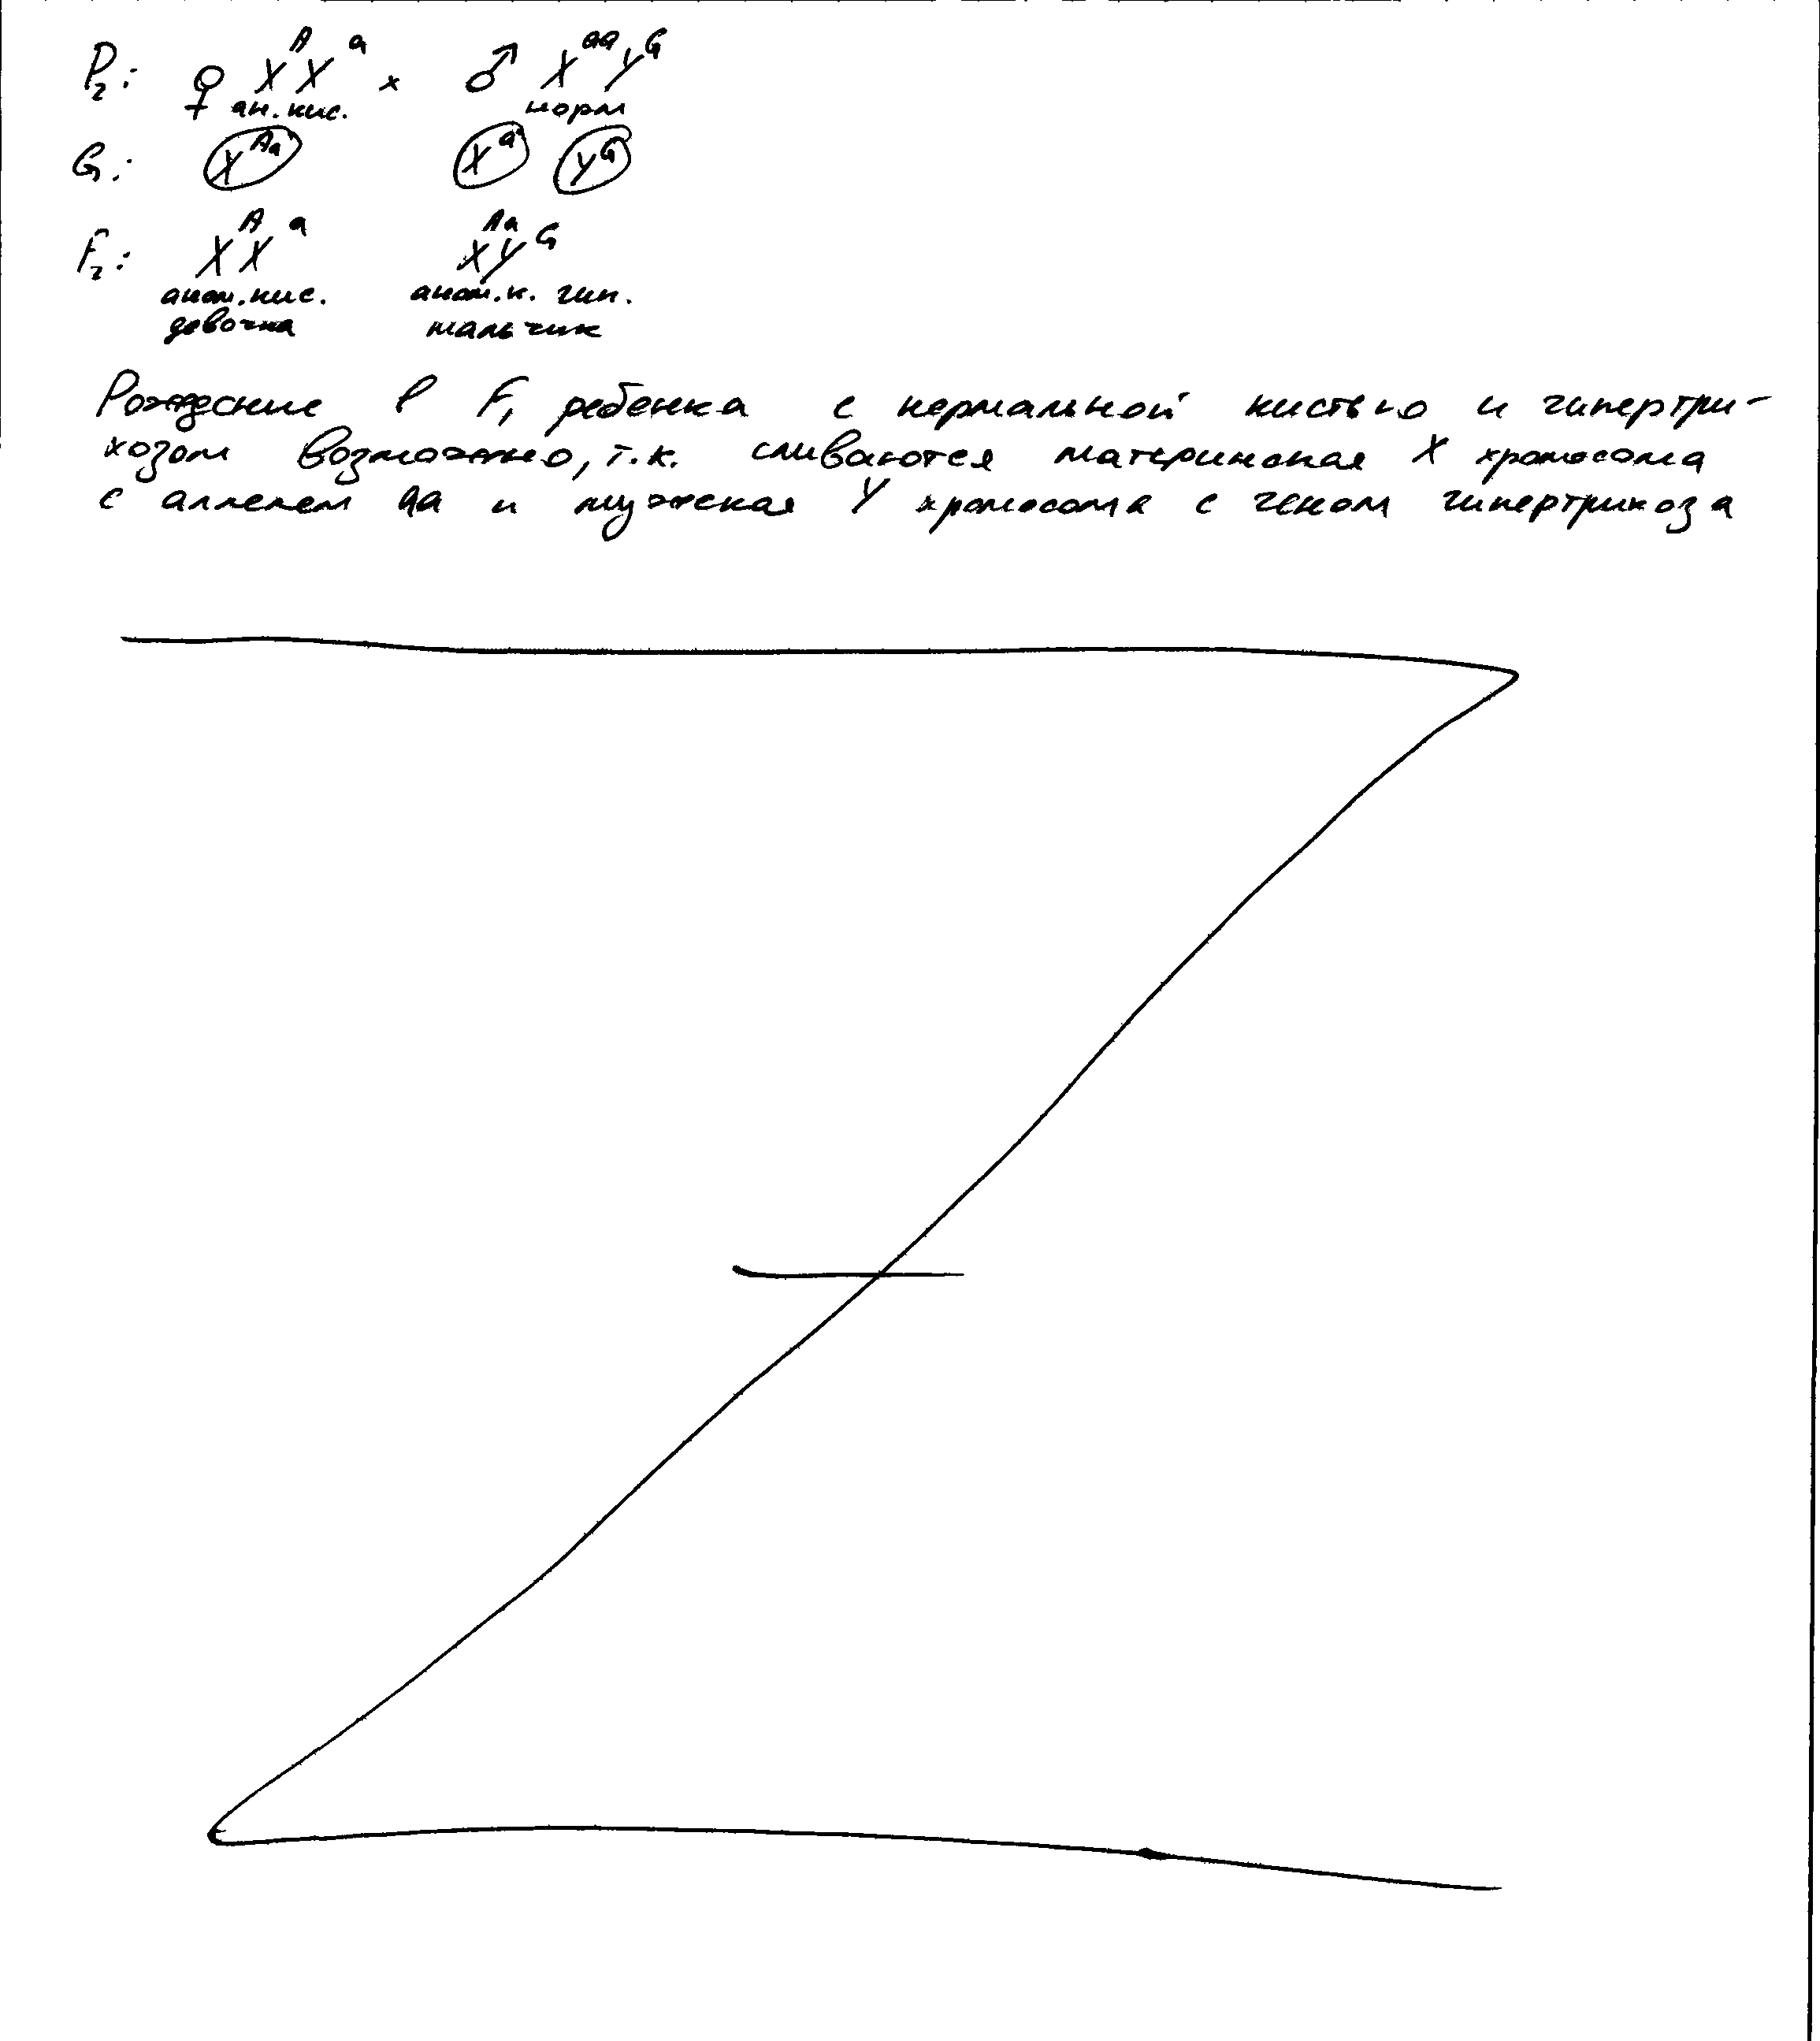 P₂: ♀ XᴬXᵃ × ♂ XᵃᵃYᴳ
ан. кис. норм
G: Xᴬᵃ Xᵃ Yᴳ
F₂: XXᴬ ᵃ XᴬᵃYᴳ
аном. кис. аном. к. гип.
девочка мальчик
Рождение в F₁ ребенка с нормальной кистью и гипертри-
хозом возможно, т.к. сливаются материнская X хромосома
с аллелем аа и мужская Y хромосома с геном гипертрихоза